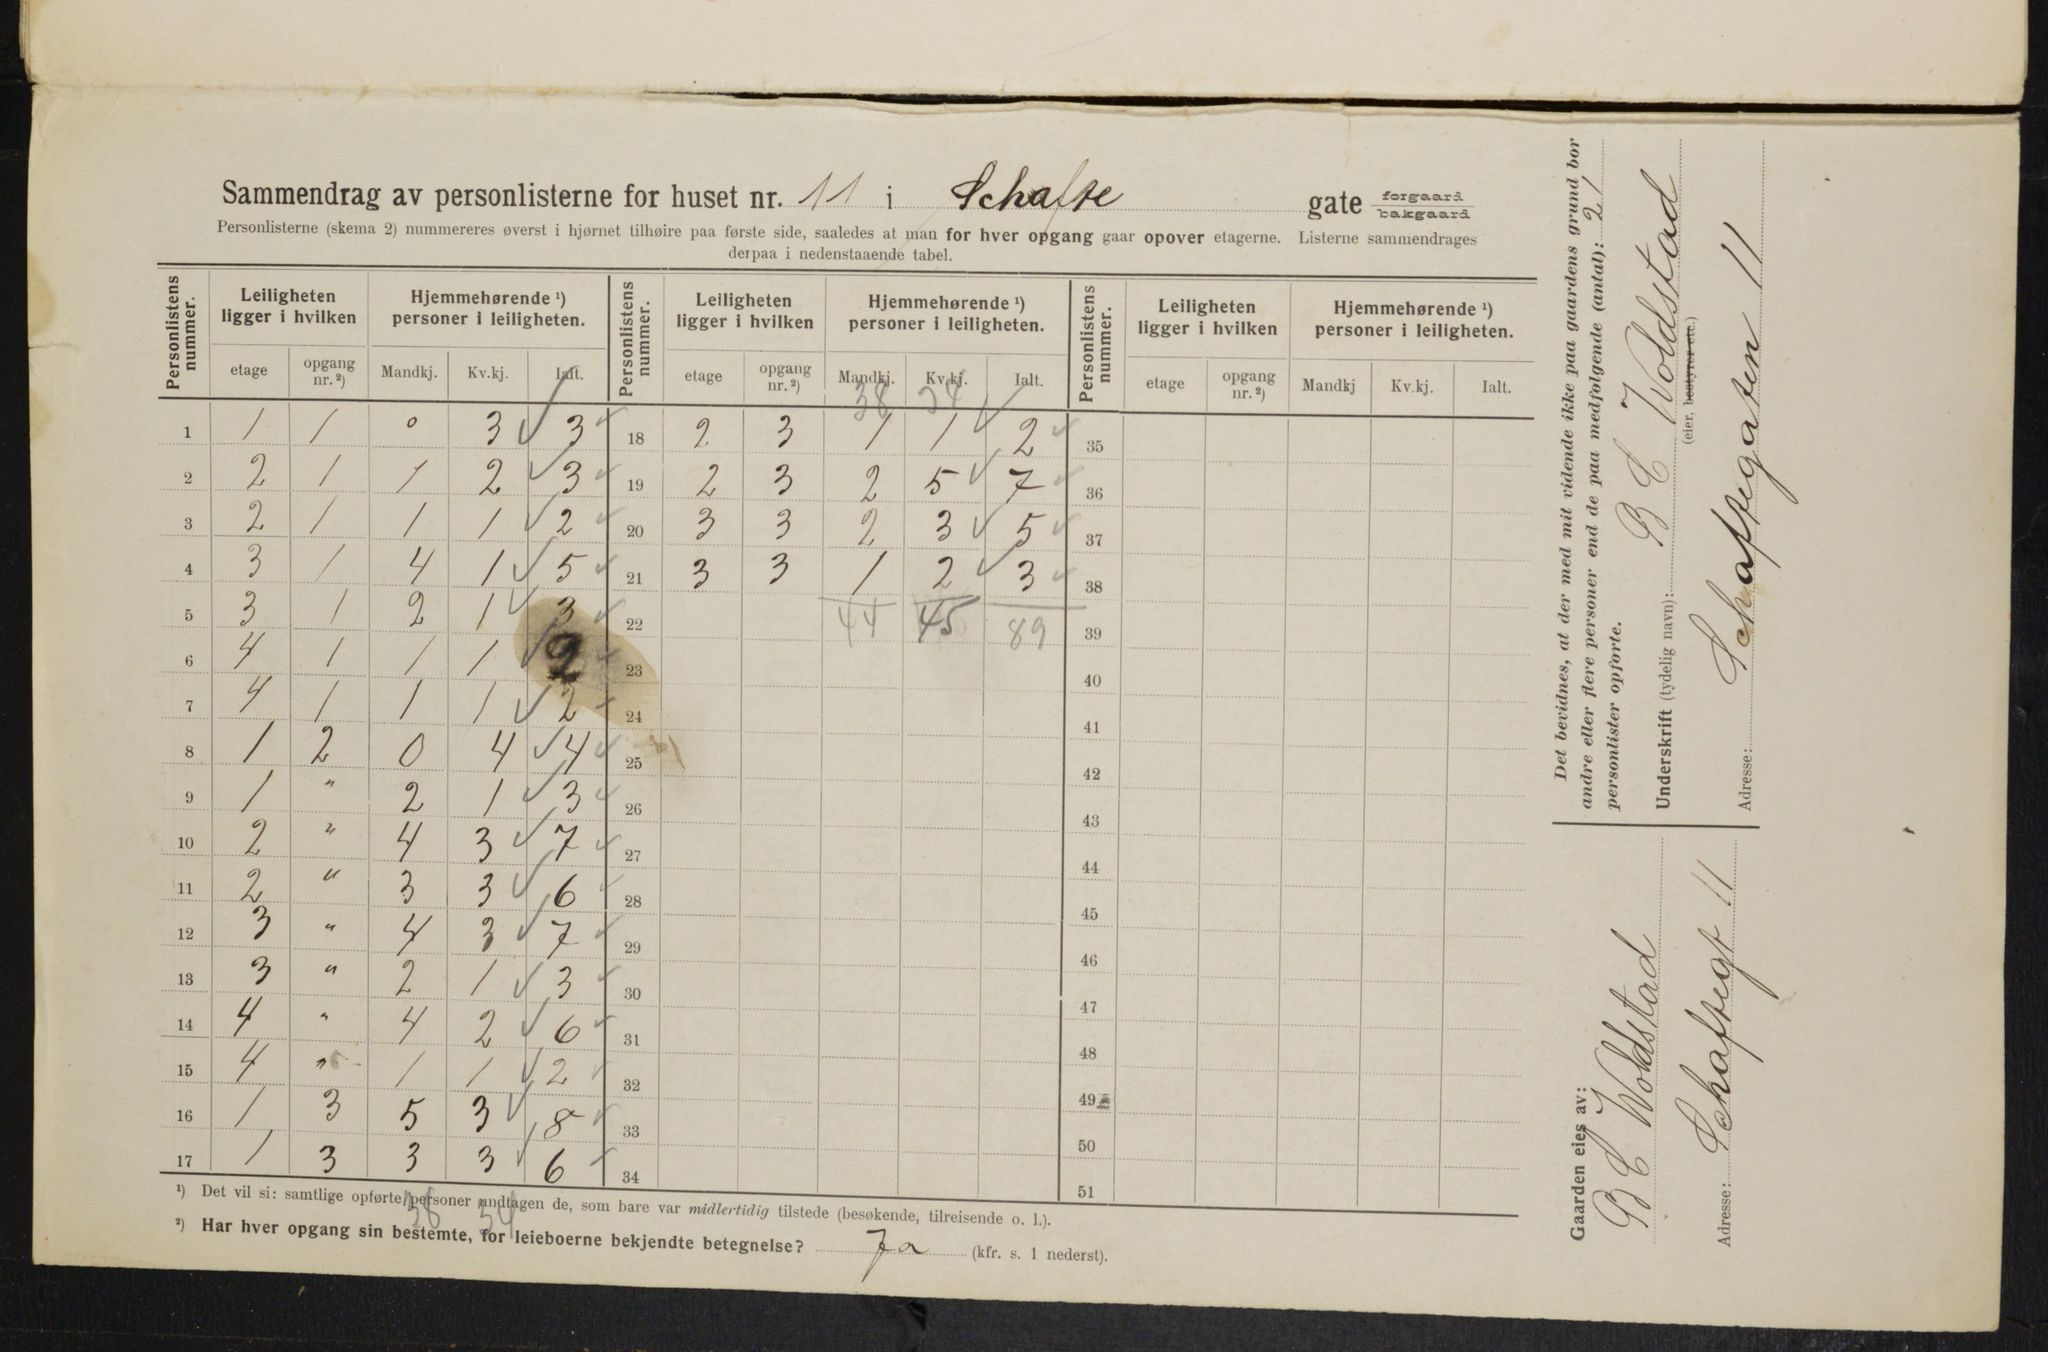 Sammendrag av personlisterne for huset nr. 11 i Schafte gate forgaard bakgaard
Personlisterne (skema 2) nummereres øverst i hjørnet tilhøire paa første side, saaledes at man for hver opgang gaar opover etagerne. Listerne sammendrages
derpaa i nedenstaaende tabel.
Personlistens nummer. Leiligheten ligger i hvilken Hjemmehørende ¹) personer i leiligheten. Personlistens nummer. Leiligheten ligger i hvilken Hjemmehørende ¹) personer i leiligheten. Personlistens nummer. Leiligheten ligger i hvilken Hjemmehørende ¹) personer i leiligheten.
etage opgang nr. ²) Mandkj. Kv.kj. Ialt. etage opgang nr. ²) Mandkj. Kv.kj. Ialt. etage opgang nr. ²) Mandkj Kv.kj. Ialt.
38 34
1 1 1 0 3 3 18 2 3 1 1 2 35
2 2 1 1 2 3 19 2 3 2 5 7 36
3 2 1 1 1 2 20 3 3 2 3 5 37
4 3 1 4 1 5 21 3 3 1 2 3 38
5 3 1 2 1 3 22 44 45 89 39
6 4 1 1 1 2 23 40
7 4 1 1 1 2 24 41
8 1 2 0 4 4 25 42
9 1 " 2 1 3 26 43
10 2 " 4 3 7 27 44
11 2 " 3 3 6 28 45
12 3 " 4 3 7 29 46
13 3 " 2 1 3 30 47
14 4 " 4 2 6 31 48
15 4 " 1 1 2 32 49
16 1 3 5 3 8 33 50
17 1 3 3 3 6 34 51
38 34
¹) Det vil si: samtlige opførte personer undtagen de, som bare var midlertidig tilstede (besøkende, tilreisende o. l.).
²) Har hver opgang sin bestemte, for leieboerne bekjendte betegnelse? Ja (kfr. s. 1 nederst).
Det bevidnes, at der med mit vidende ikke paa gaardens grund bor
andre eller flere personer end de paa medfølgende (antal): 21
personlister opførte.
Underskrift (tydelig navn): B C Woldstad
(eier, bestyrer etc.)
Adresse: Schaftegaten 11
Gaarden eies av:
B C Woldstad
Adresse: Schaftegt 11